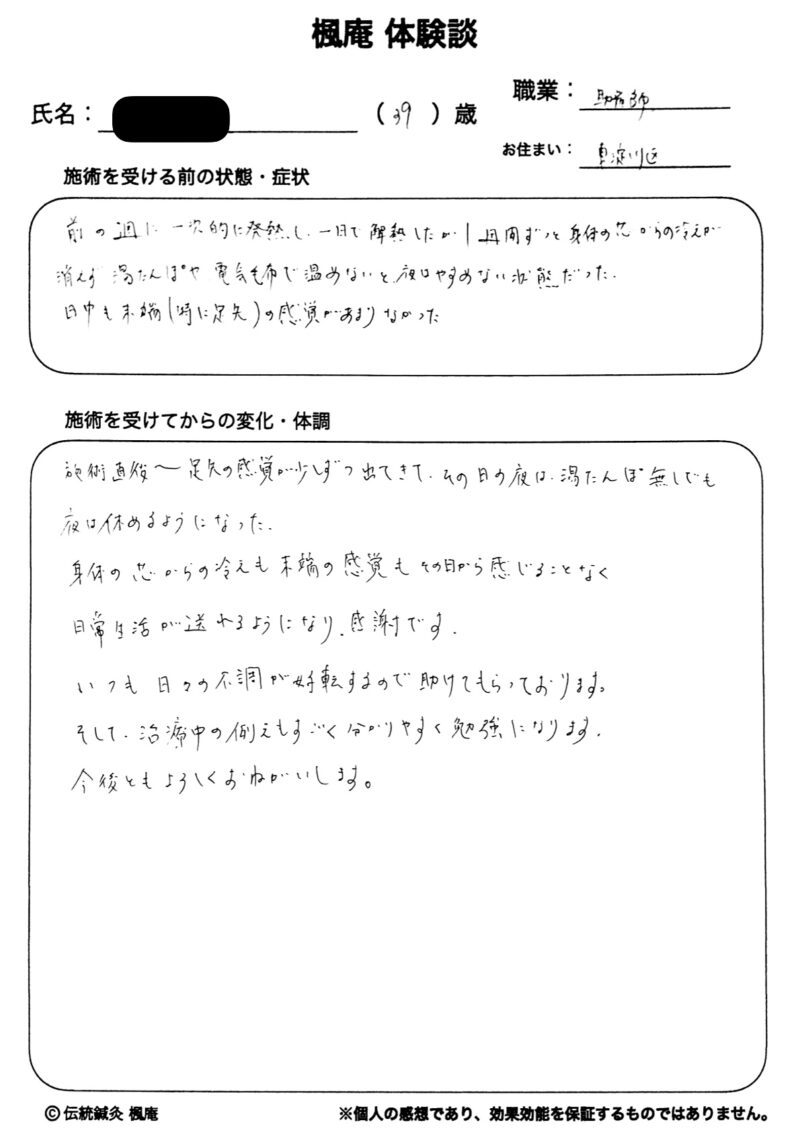 楓庵 体験談
氏名：
（39）歳
職業：助産師
お住まい：東淀川区
施術を受ける前の状態・症状
前の週に一次的に発熱し、一日で解熱したが1週間ずっと身体の芯からの冷えが
消えず湯たんぽや電気毛布で温めないと夜はやすめない状態だった。
日中も末端(特に足先)の感覚があまりなかった
施術を受けてからの変化・体調
施術直後〜足先の感覚が少しずつ出てきて、その日の夜は、湯たんぽ無しでも
夜は休めるようになった。
身体の芯からの冷えも末端の感覚もその日から感じることなく
日常生活が送れるようになり、感謝です。
いつも日々の不調が好転するので助けてもらっております。
そして、治療中の例えもすごく分かりやすく勉強になります。
今後ともよろしくおねがいします。
©伝統鍼灸 楓庵
※個人の感想であり、効果効能を保証するものではありません。